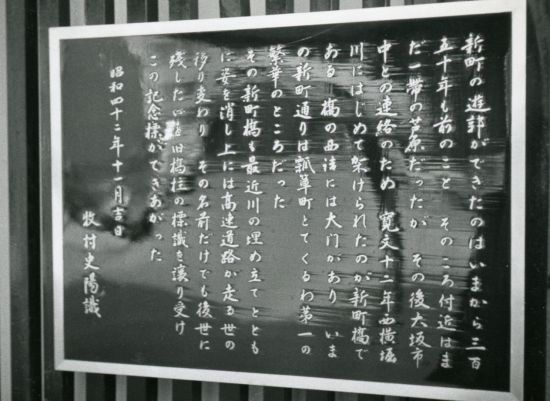 新町の遊郭ができたのはいまから三百
五十年も前のこと そのころ付近はま
だ一帯の芦原だったが その後大坂市
中との連絡のため 寛文十二年西横堀
川にはじめて架けられたのが新町橋で
ある 橋の西詰には大門があり いま
の新町通りは瓢箪町とてくるわ第一の
繁華のところだった
その新町橋も最近川の埋め立てととも
に姿を消し上には高速道路が走る世の
移り変わり その名前だけでも後世に
残したいと旧橋柱の標識を譲り受け
この記念様ができあがった
昭和四十二年十一月吉日
牧村史陽識